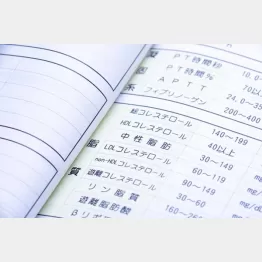 PT時間秒
PT時間% 10.0
APTT 70以上
フィブリノーゲン 24.0~35
200~400
総コレステロール 140~199
HDLコレステロール 40以上
中性脂肪 30~149
脂 LDLコレステロール 60~119
non-HDLコレステロール 90~149
質 遊離コレステロール 30~60
リン脂質
遊離脂肪酸 160~
βリポ
mg/
mg/dl